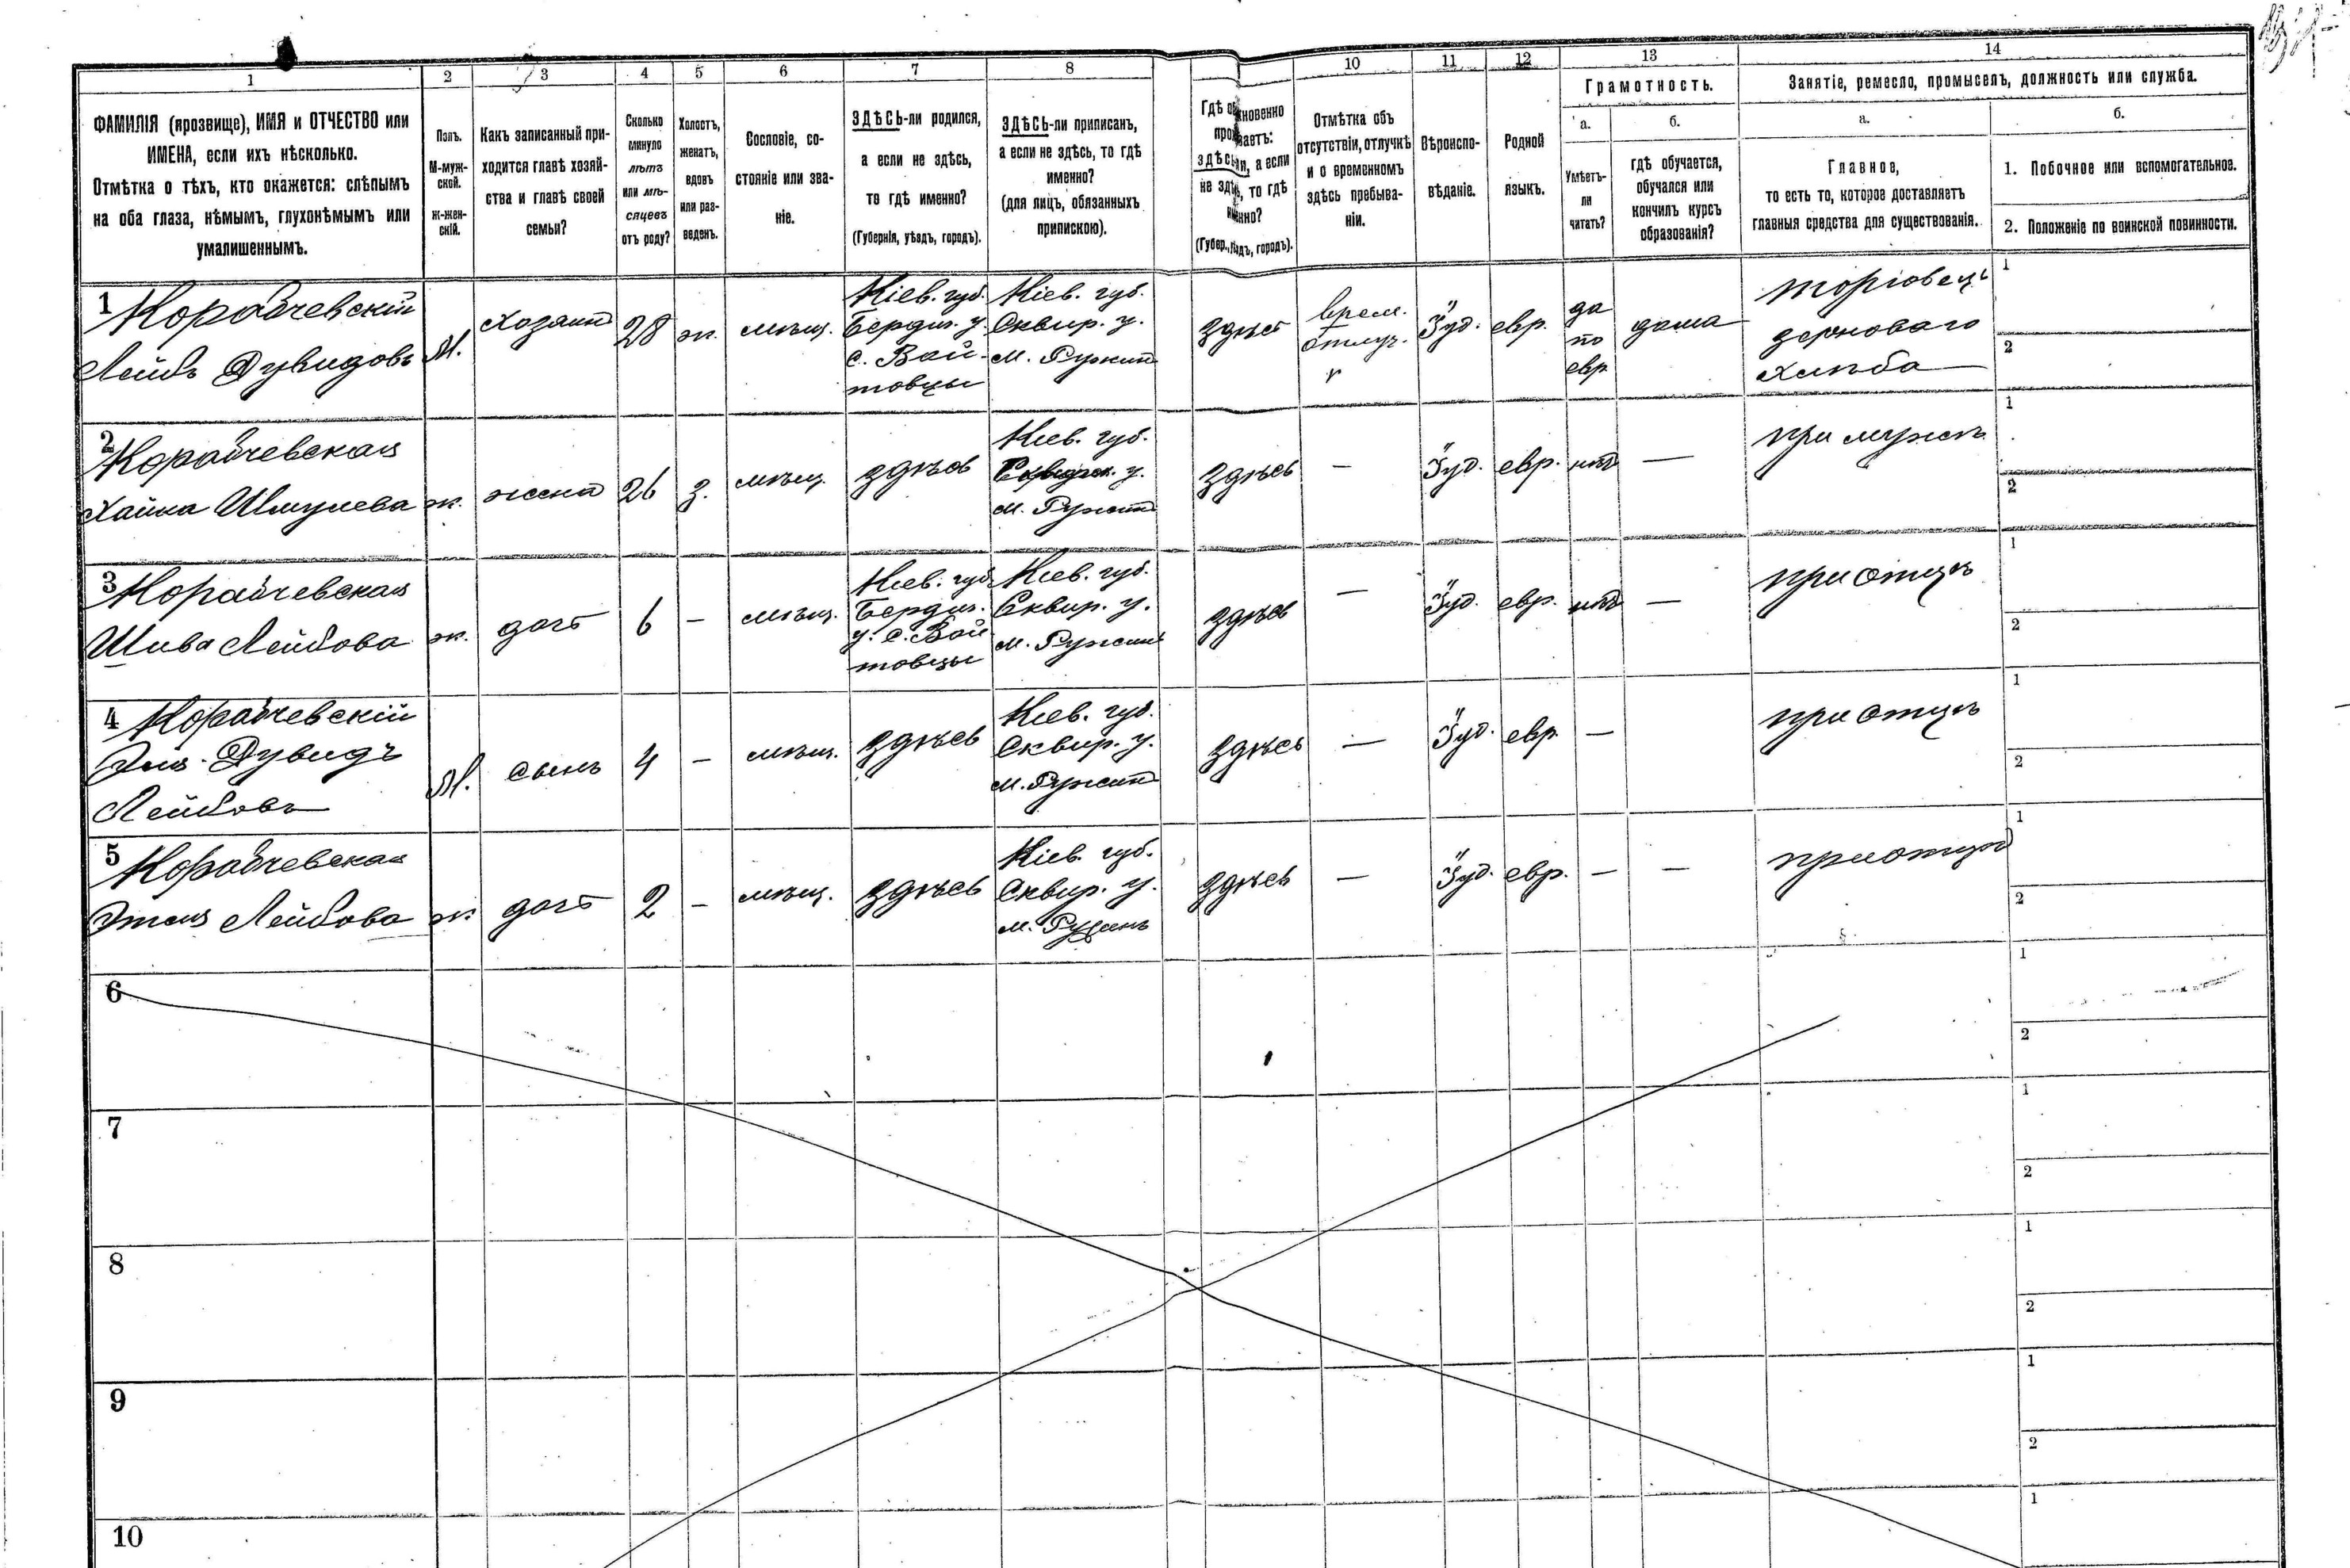 1 2 3 4 5 6 7 8 10 11 12 13 14
ФАМИЛІЯ (прозвище), ИМЯ и ОТЧЕСТВО или
ИМЕНА, если ихъ нѣсколько.
Отмѣтка о тѣхъ, кто окажется: слѣпымъ
на оба глаза, нѣмымъ, глухонѣмымъ или
умалишеннымъ.
Полъ.
М-муж-
ской.
ж-жен-
скій.
Какъ записанный при-
ходится главѣ хозяй-
ства и главѣ своей
семьи?
Сколько
минуло
лѣтъ
или мѣ-
сяцевъ
отъ роду?
Холостъ,
женатъ,
вдовъ
или раз-
веденъ.
Сословіе, со-
стояніе или зва-
ніе.
ЗДѢСЬ-ли родился,
а если не здѣсь,
то гдѣ именно?
(Губернія, уѣздъ, городъ).
ЗДѢСЬ-ли приписанъ,
а если не здѣсь, то гдѣ
именно?
(для лицъ, обязанныхъ
припискою).
Гдѣ
здѣсь а если
не то гдѣ
городъ).
Отмѣтка объ
отсутствіи, отлучкѣ
и о временномъ
здѣсь пребыва-
ніи.
Вѣроиспо-
вѣданіе.
Родной
языкъ.
Грамотность.
а.
Умѣетъ-
ли
читать?
б.
гдѣ обучается,
обучался или
кончилъ курсъ
образованія?
Занятіе, ремесло, промыселъ, должность или служба.
а.
Главное,
то есть то, которое доставляетъ
главныя средства для существованія.
б.
1. Побочное или вспомогательное.
2. Положеніе по воинской повинности.
1 Корабчевскій
Лейбъ Дувидовъ
М.
Хозяинъ
28
ж.
мѣщ.
Кіев. губ.
Бердич. у.
с. Вой-
товцы
Кіев. губ.
Сквир. у.
м. Ружинъ
здѣсь
врем.
отлуч.
Іуд.
евр.
да
по
евр
дома
торговецъ
зерноваго
хлѣба
1
2
2 Корабчевская
Хайка Шмулева
ж.
жена
26
з.
мѣщ.
здѣсь
Кіев. губ.
Сквирск. у.
м. Ружинъ
здѣсь
—
Іуд.
евр.
нѣтъ
—
при мужѣ
1
2
3 Корабчевская
Шива Лейбова
ж.
дочь
6
—
мѣщ.
Кіев. губ.
Бердич.
у. с. Вой
товцы
Кіев. губ.
Сквир. у.
м. Ружинъ
здѣсь
—
Іуд.
евр.
нѣтъ
—
при отцѣ
1
2
4 Корабчевскій
Дувидъ
Лейбовъ
М.
сынъ
4
—
мѣщ.
здѣсь
Кіев. губ.
Сквир. у.
м. Ружинъ
здѣсь
—
Іуд.
евр
—
при отцѣ
1
2
5 Корабчевская
Этля Лейбова
ж
дочь
2
—
мѣщ.
здѣсь
Кіев. губ.
Сквир. у.
м. Ружинъ
здѣсь
—
Іуд.
евр.
—
—
при отцѣ
1
2
6
1
2
7
1
2
8
1
2
9
1
2
10
1